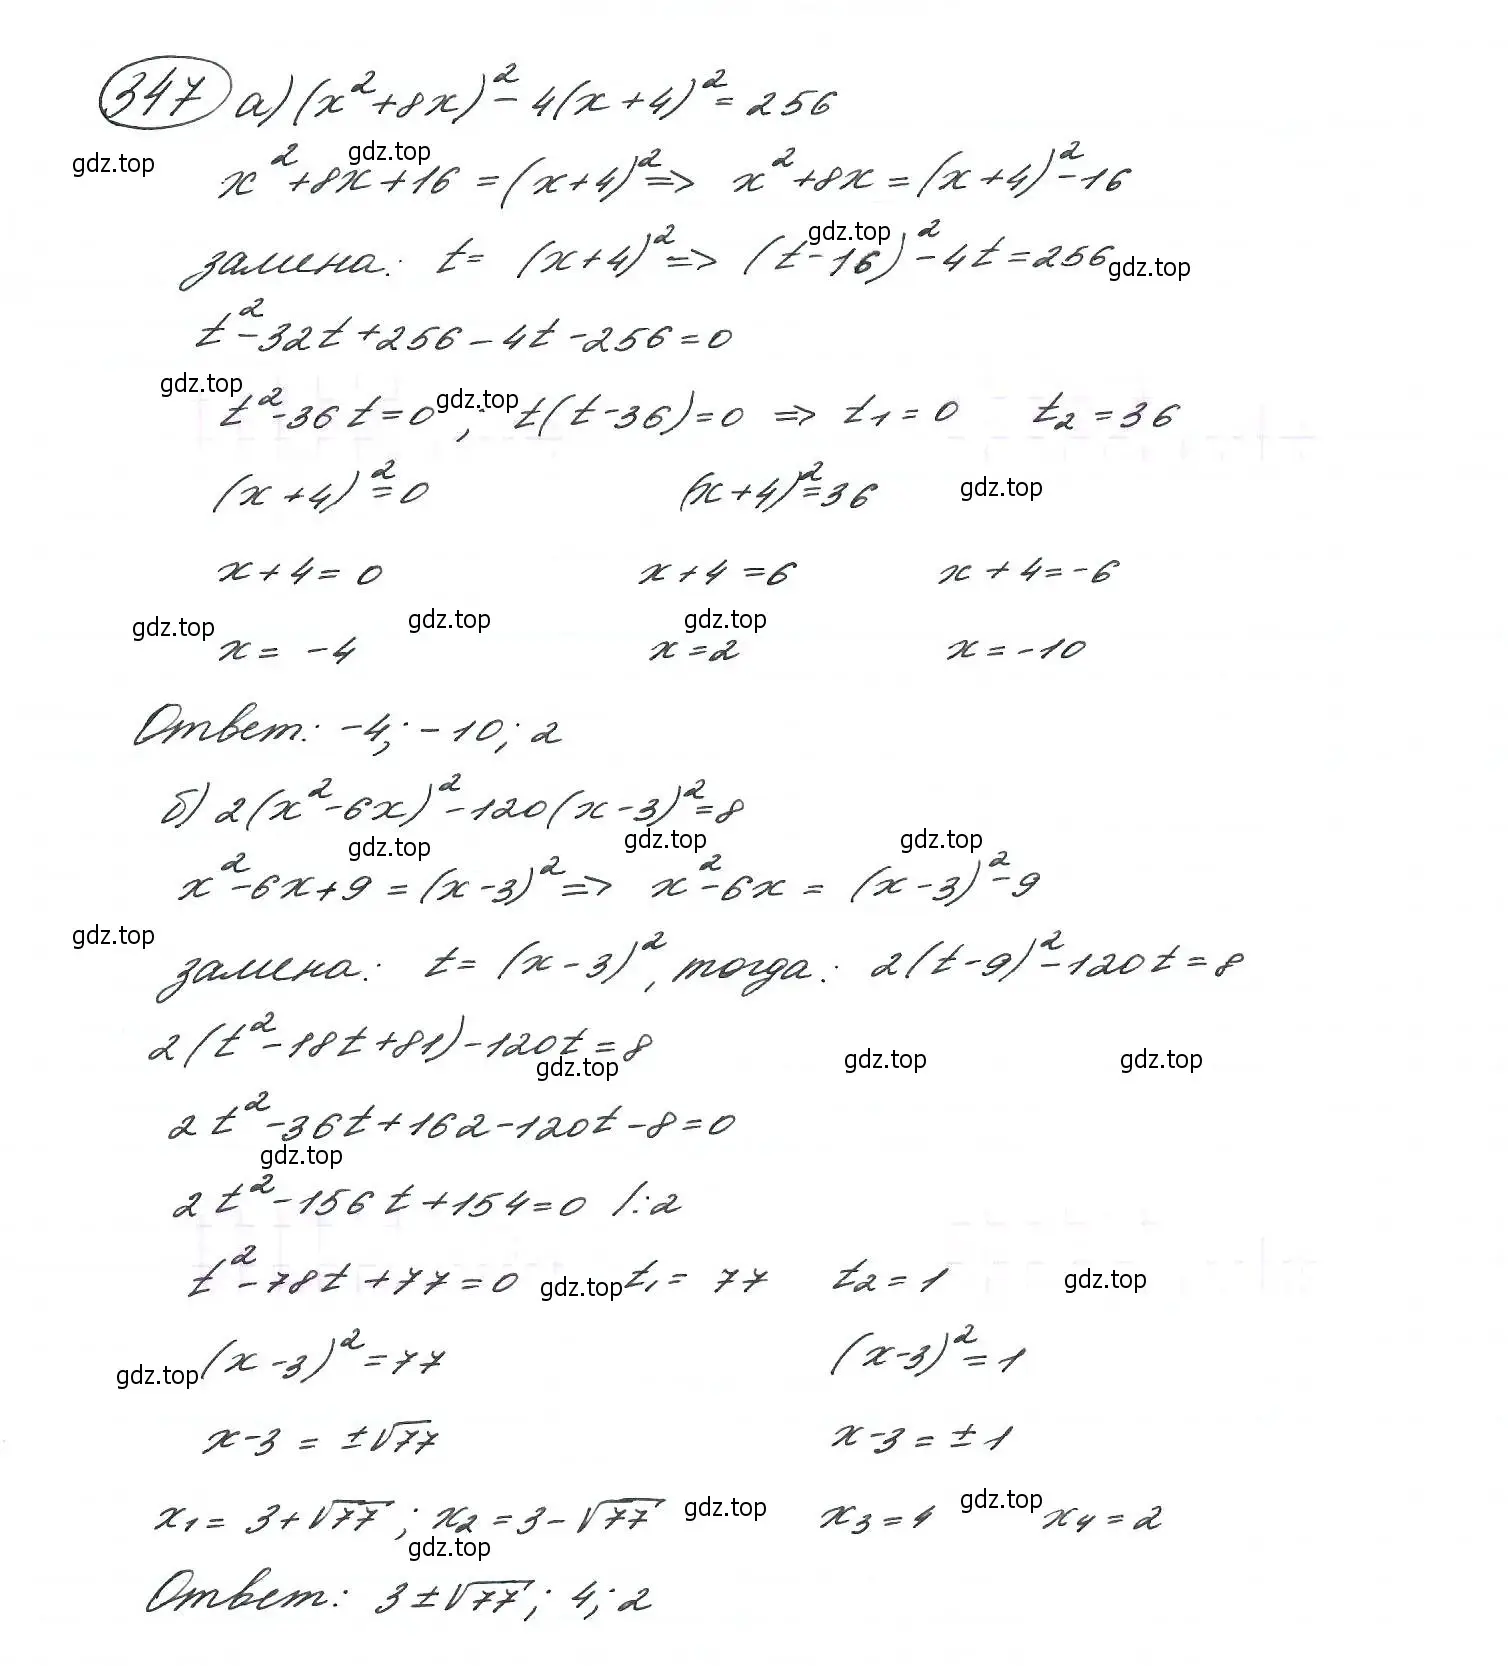 347 а) (x²+8x)² - 4(x+4)² = 256
gdz.top gdz.top
x²+8x+16 = (x+4)² => x²+8x = (x+4)²-16
gdz.top
замена: t = (x+4)² => (t-16)²-4t=256 gdz.top
t²-32t+256-4t-256=0
gdz.top gdz.top
t²-36t=0; t(t-36)=0 => t₁=0 t₂=36
(x+4)²=0 (x+4)²=36 gdz.top
x+4=0 x+4=6 x+4=-6
gdz.top gdz.top gdz.top
x=-4 x=2 x=-10
Ответ: -4; -10; 2
б) 2(x²-6x)²-120(x-3)²=8
gdz.top gdz.top gdz.top
x²-6x+9=(x-3)² => x²-6x = (x-3)²-9
gdz.top
замена: t=(x-3)², тогда: 2(t-9)²-120t=8
2(t²-18t+81)-120t=8
gdz.top gdz.top gdz.top
2t²-36t+162-120t-8=0
gdz.top
2t²-156t+154=0 /:2
t²-78t+77=0 gdz.top t₁=77 t₂=1 gdz.top
gdz.top (x-3)²=77 (x-3)²=1
x-3=±√77 x-3=±1
x₁=3+√77; x₂=3-√77 gdz.top x₃=4 gdz.top x₄=2
gdz.top
Ответ: 3±√77; 4; 2